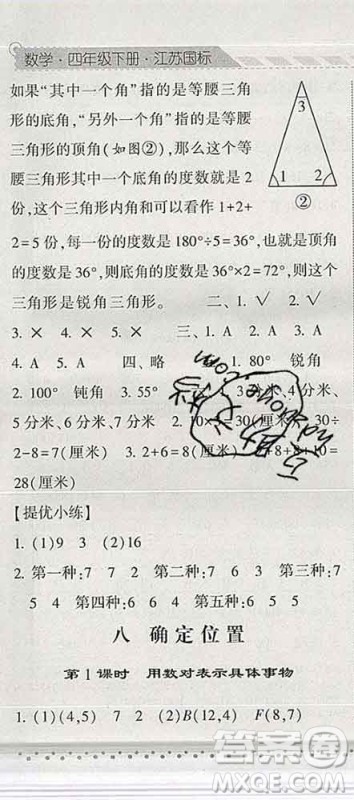 数学·四年级下册·江苏国标
如果“其中一个角”指的是等腰三角
形的底角,“另外一个角”指的是等腰
三角形的顶角(如图②),那么这个等
腰三角形其中一个底角的度数就是2
份,这个三角形内角和可以看作1+2+
2=5份,每一份的度数是180°÷5=36°,也就是顶角
的度数是36°,则底角的度数是36°×2=72°,则这个
三角形是锐角三角形。 二、1.√ 2.√
3
1 2
②
3.× 4.× 5.× 三、1.A 2.A 3.B
4.A 5.A 四、略 1.80° 锐角
2.100° 钝角 3.55° 3分米、4分
米、5分米、6分米、7分米 2.10×3=30(厘米) 30÷
2-8=7(厘米) 3.2+6=8(厘米) +8+8+10=
28(厘米)
【提优小练】
1.(1)9 3 (2)16
2.第一种:7 7 2 第二种:7 6 3 第三种:7
5 4 第四种:6 6 4 第五种:6 5 5
八 确定位置
第1课时 用数对表示具体事物
1.(1)(4,5) 7 2 (2)B(12,4) F(8,7)
答案圈
MXQE.COM